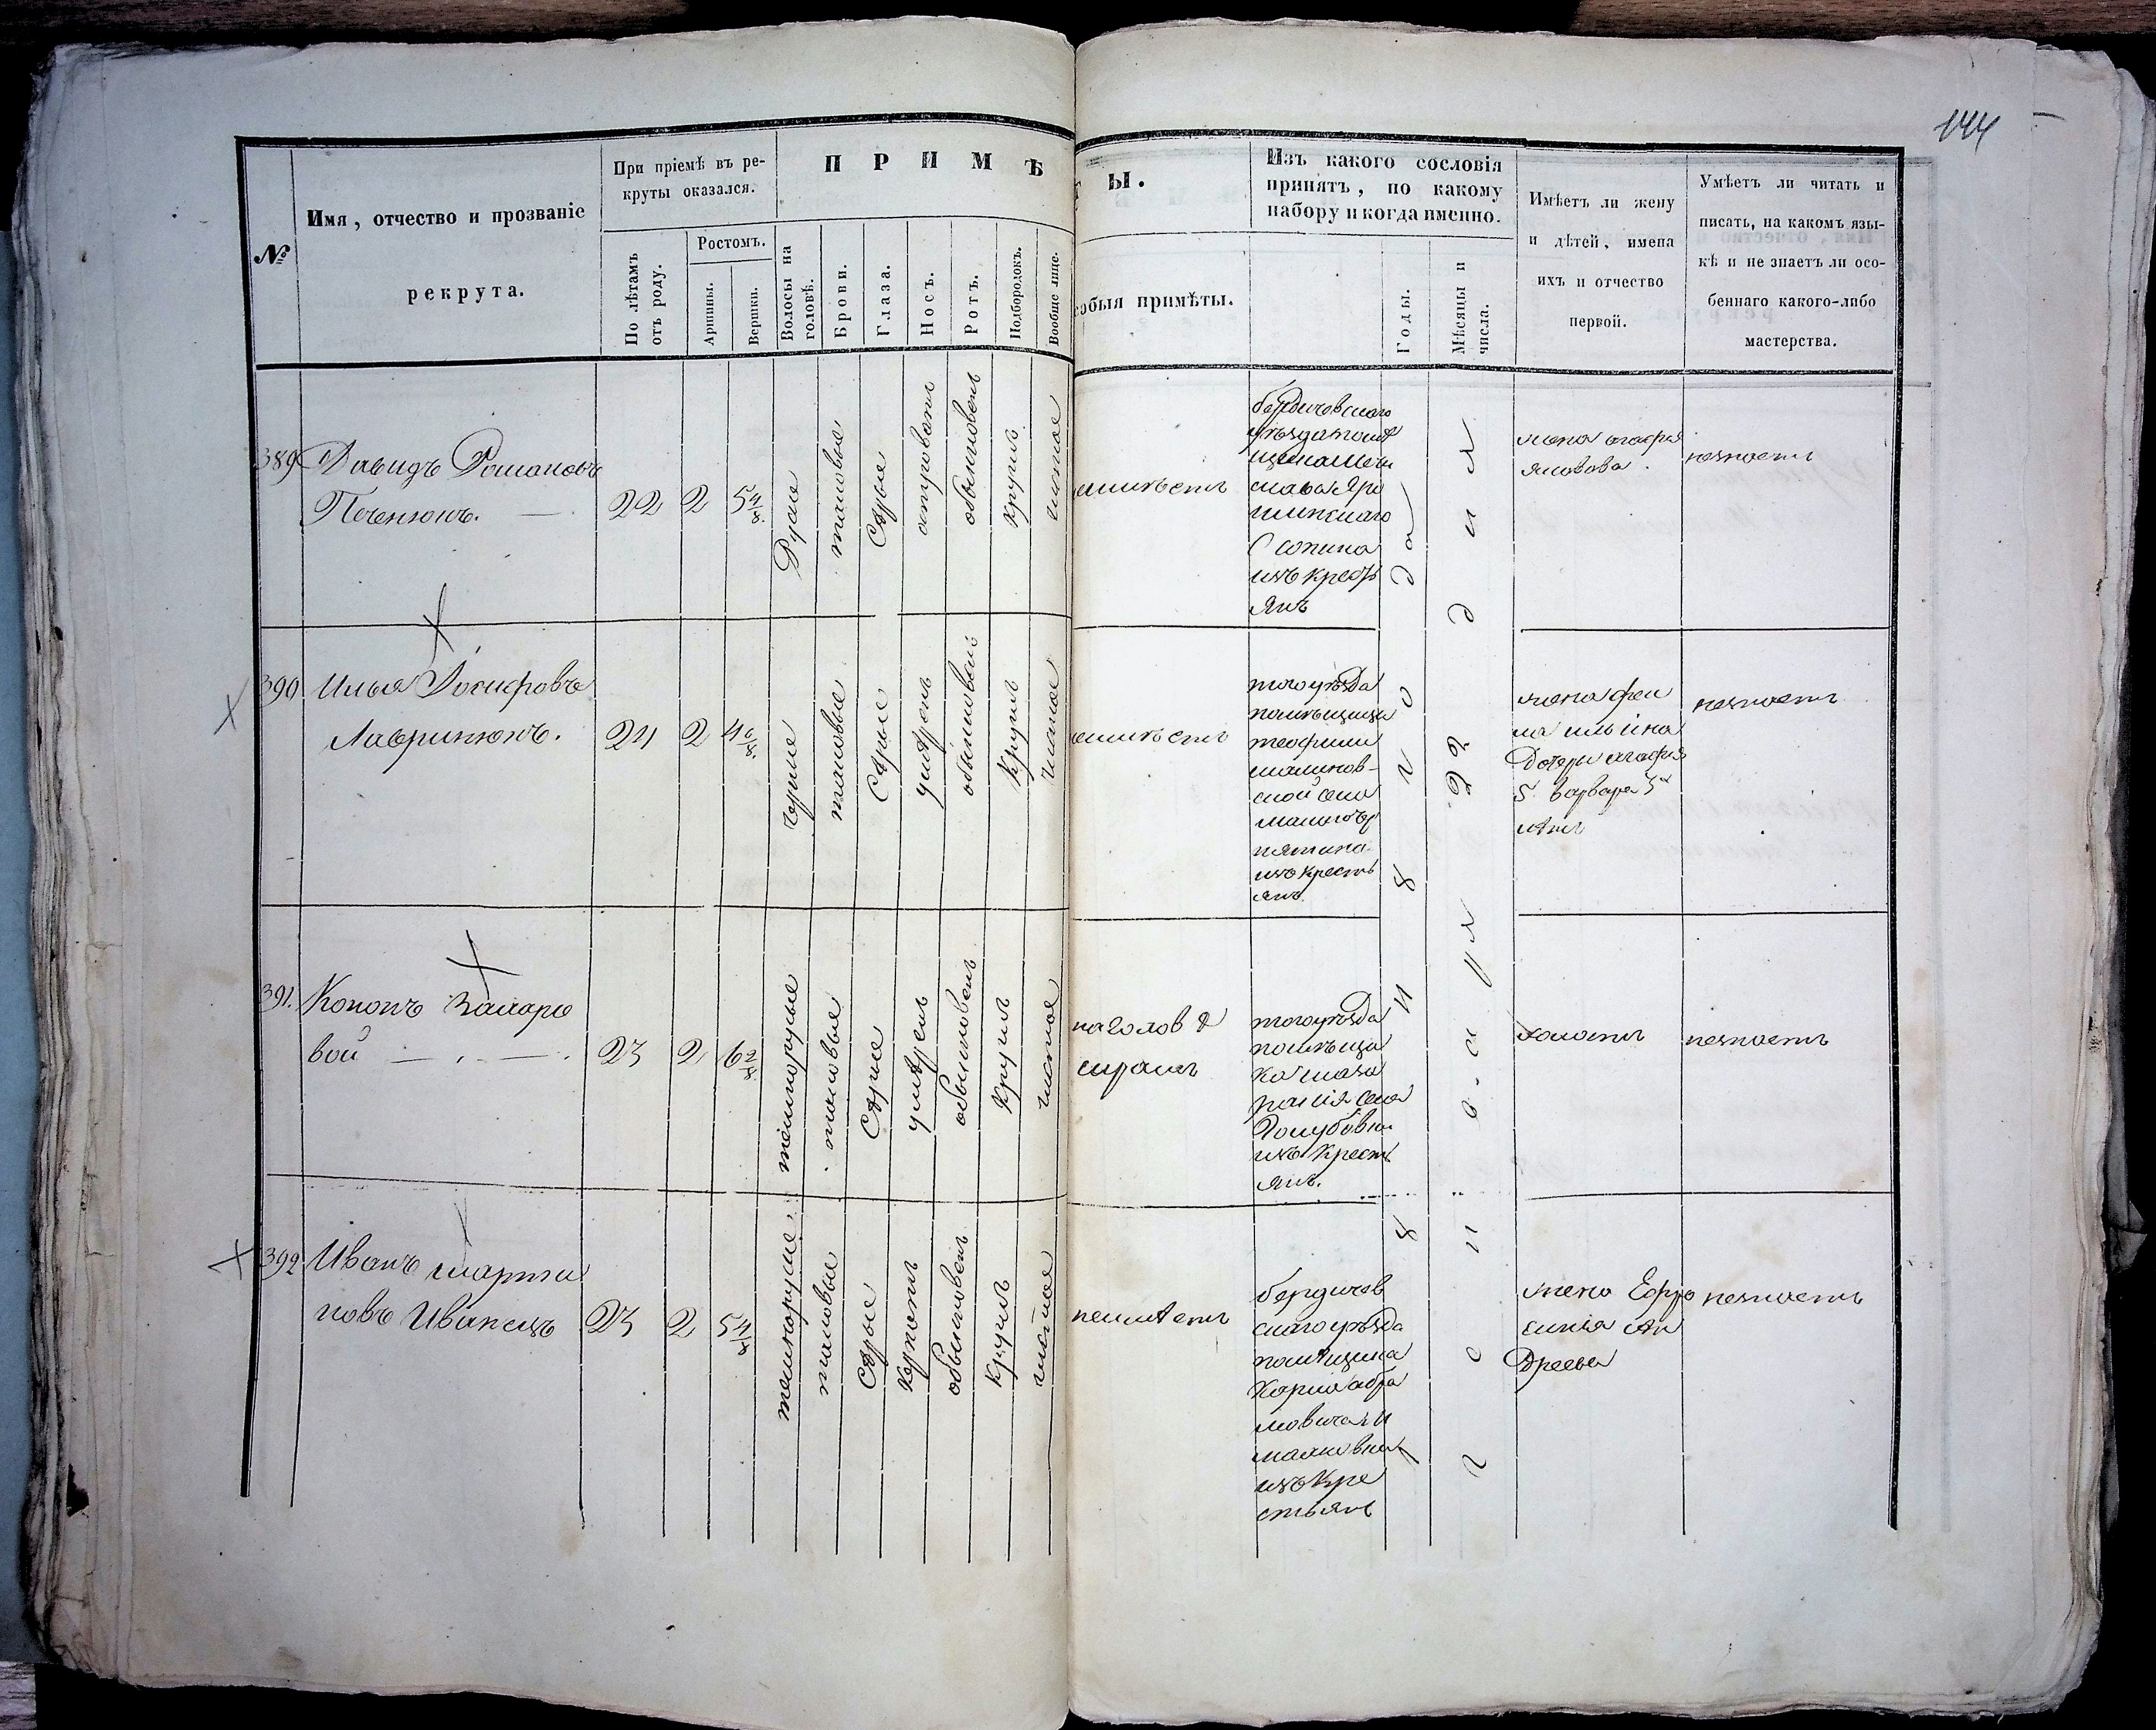 144
№
Имя, отчество и прозваніе
рекрута.
При пріемѣ въ ре-
круты оказался.
По лѣтамъ
отъ роду.
Ростомъ.
Аршины.
Вершки.
П Р И М Ѣ
Т Ы.
Волосы на
головѣ.
Брови.
Глаза.
Носъ.
Ротъ.
Подбородокъ.
Вообще лице.
собыя примѣты.
Изъ какого сословія
принятъ, по какому
набору и когда именно.
Годы.
Мѣсяцы и
числа.
Имѣетъ ли жену
и дѣтей, имена
ихъ и отчество
первой.
Умѣетъ ли читать и
писать, на какомъ язы-
кѣ и не знаетъ ли осо-
беннаго какого-либо
мастерства.
389 Давидъ Романовъ
Печенюкъ.
22 2 5 4/8
Русые
таковые
Сѣрые
обыкновенъ
круглъ
чистое
бердичевскаго
уѣзда помѣ
щика
изъ крестъ
янъ
жена агафия
яковова.
незнаетъ
390 Илья Іосифовъ
Лавринюкъ.
24 2 4 6/8
черные
таковые
Сѣрые
умѣренъ
обыкновенъ
круглъ
чистое
тогоуѣзда
помѣщицы
теофили
изъ крестъ
янъ.
жена фек
ла ильїна
Дочери агафия
5. варвара 3х
лѣтъ
незнаетъ
391. Кононъ Захаро
вой
23 2 6 2/8
темнорусые
таковые
Сѣрые
умѣренъ
обыкновенъ
круглъ
чистое
наголовѣ
шрамъ
тогоуѣзда
помѣщика
села
Голубовки
изъ крестъ
янъ.
холостъ
незнаетъ
392 Иванъ марти
новъ Иванецъ
23 2 5 4/8
темнорусые
таковые
Сѣрые
обыкновенъ
круглъ
чистое
неимѣетъ
бердичев
скаго уѣзда
помѣщика
Карла абра
мовича
изъ кре
стьянъ
жена Ефро
синія Ан
дреева
незнаетъ